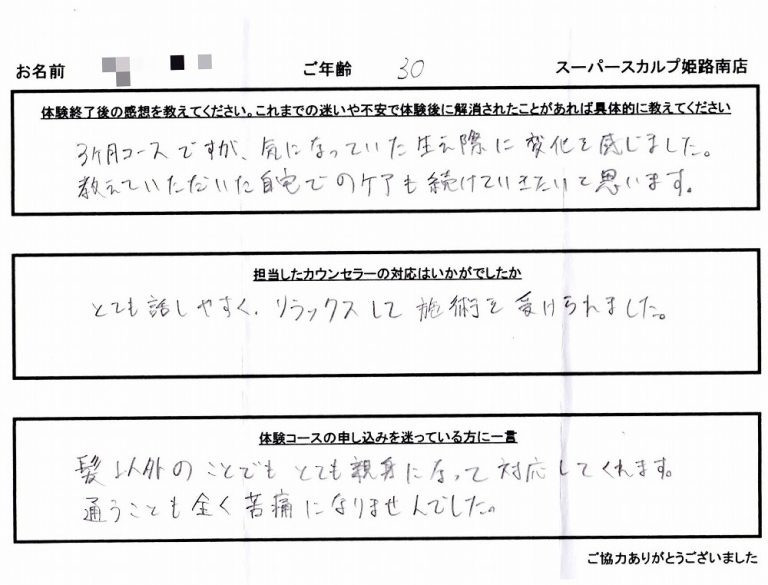 お名前 ご年齢 30 スーパースカルプ姫路南店
体験終了後の感想を教えてください。これまでの迷いや不安で体験後に解消されたことがあれば具体的に教えてください
3ヶ月コースですが、気になっていた生え際に変化を感じました。
教えていただいた自宅でのケアも続けていきたいと思います。
担当したカウンセラーの対応はいかがでしたか
とても話しやすく、リラックスして施術を受けられました。
体験コースの申し込みを迷っている方に一言
髪以外のことでもとても親身になって対応してくれます。
通うことも全く苦痛になりませんでした。
ご協力ありがとうございました